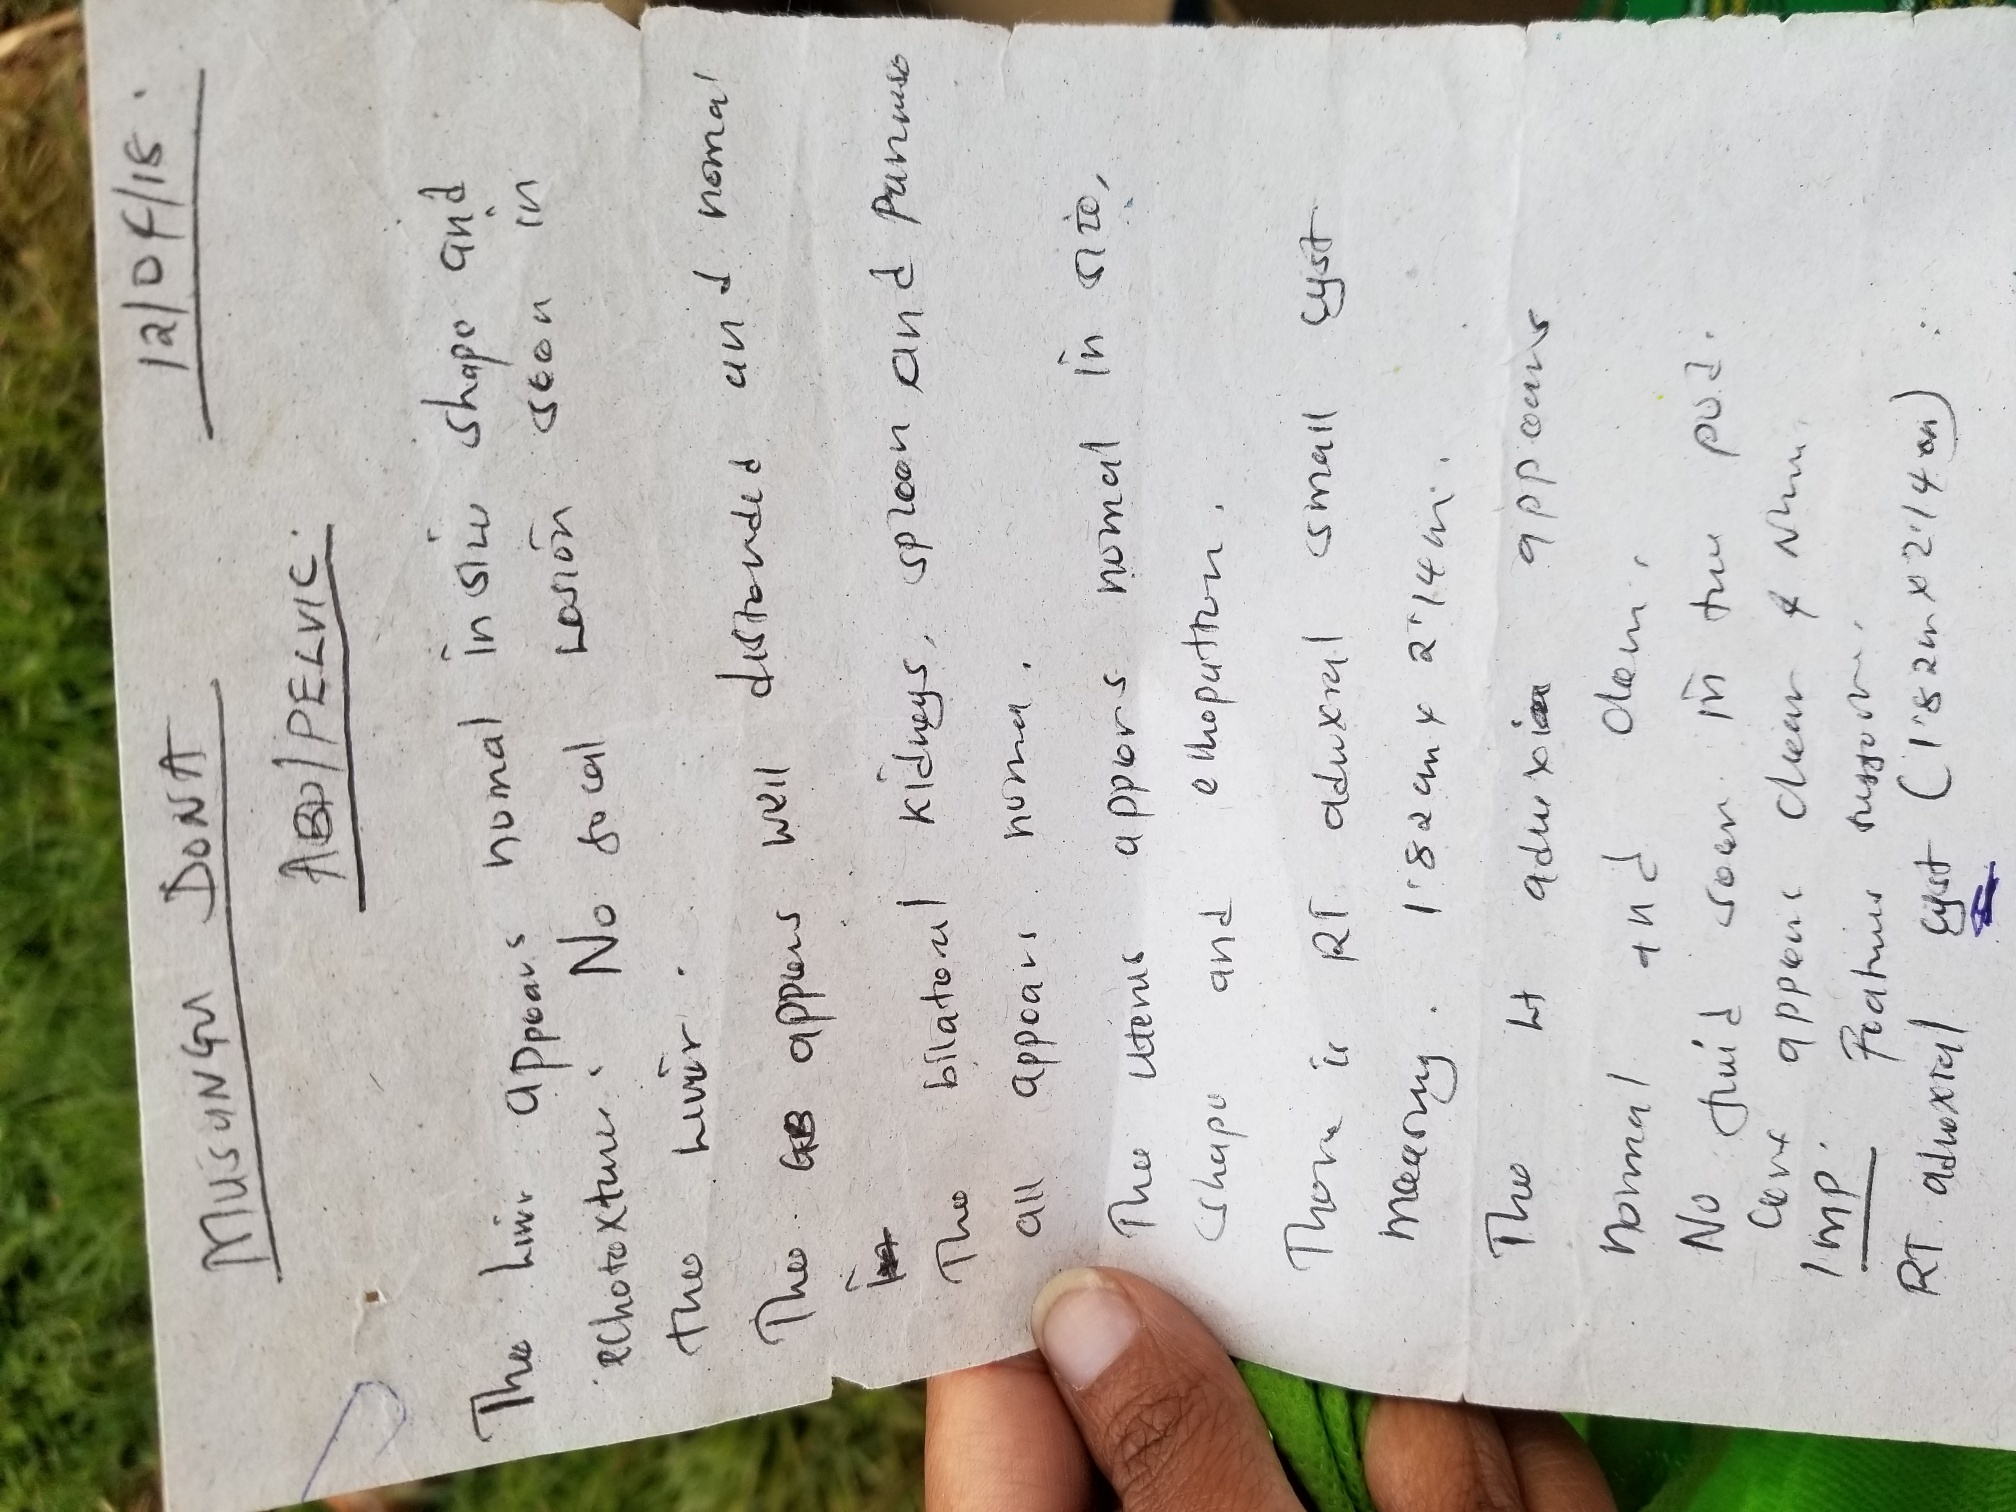 MUSUNGU DONA 12/07/18.
ABD/PELVIC.
The liver appears normal in size shape and
echotexture. No focal Lesion seen in
the Liver.
The GB appers well distended and nomal
The bilateral kidneys, spleen and
all appears normal.
The uterus appers normal in size,
shape and echopattern.
There is RT adnexal small cyst
measuring. 1.82cm x 2.14cm.
The Lt adnexia appears
normal and clear.
No fluid seen in the p.o.d.
appears clear & Nhm.
Imp: Features suggest.
RT adnexial cyst (1.82cm x 2.14cm)